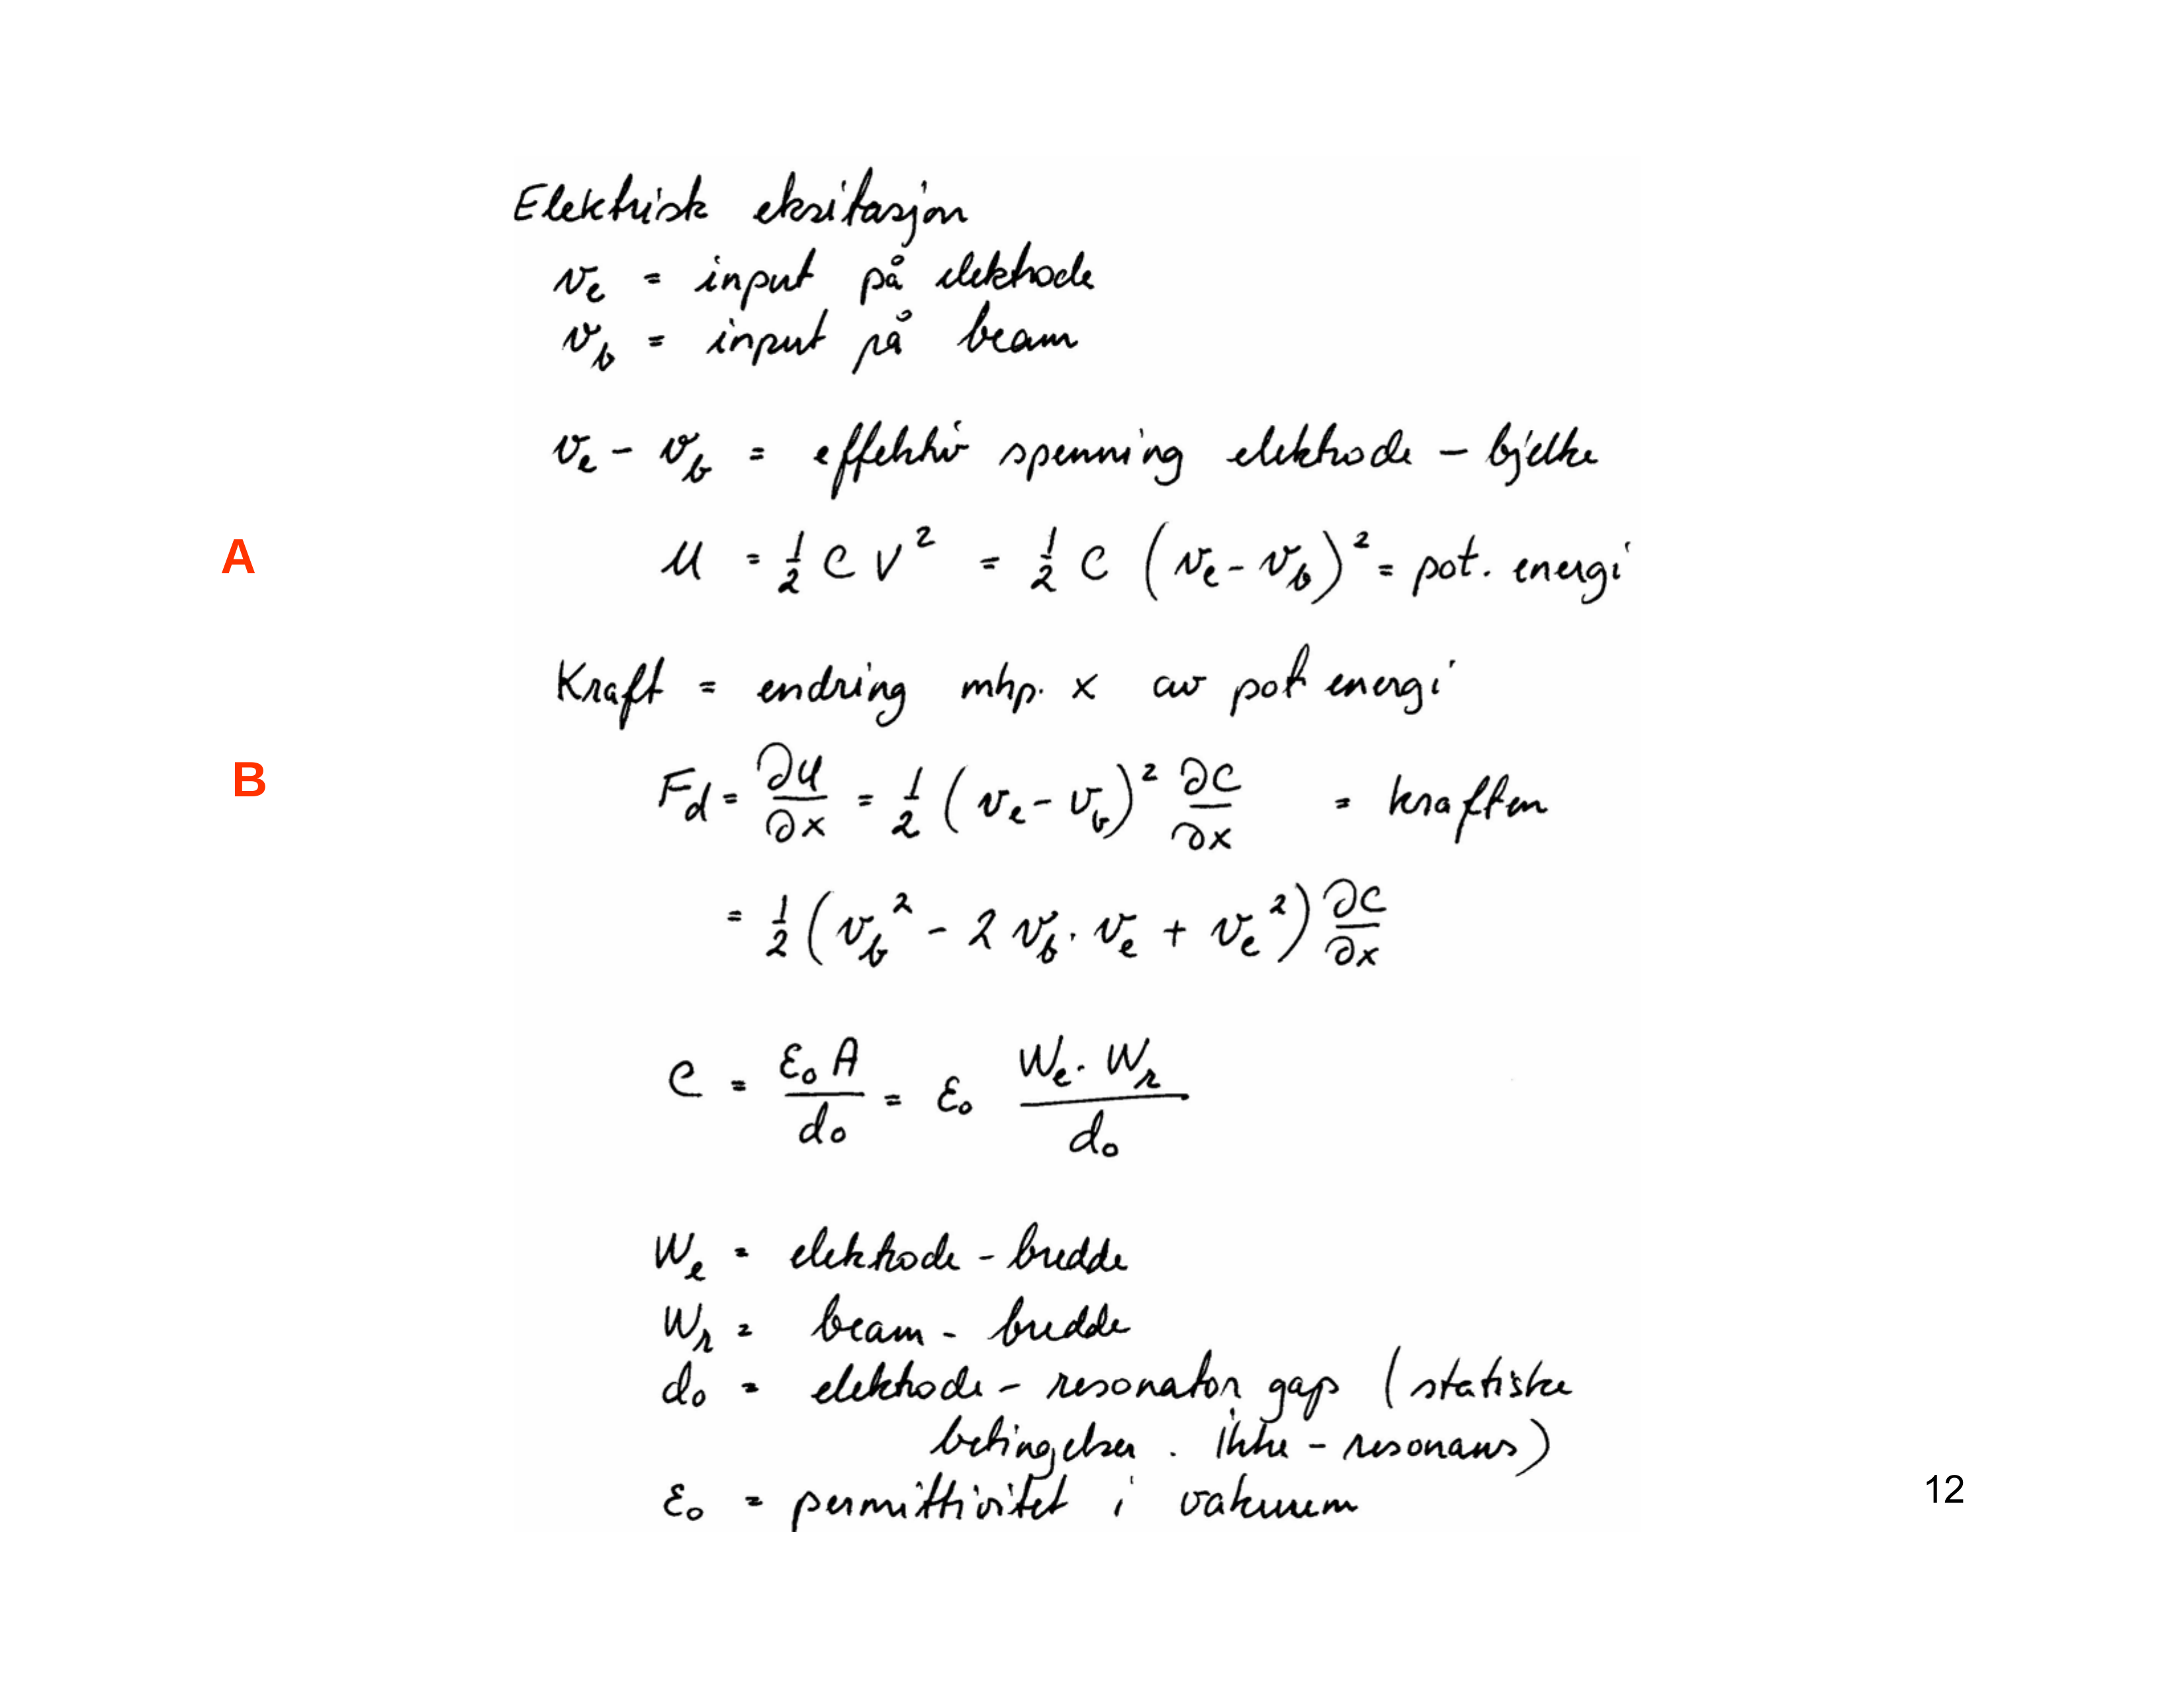 Elektrisk eksitasjon
v_e = input på elektrode
v_b = input på beam
v_e - v_b = effektiv spenning elektrode - bjelke
A
U = 1/2 C V² = 1/2 C (v_e - v_b)² = pot. energi
Kraft = endring mhp. x av pot energi
B
F_d = ∂U/∂x = 1/2 (v_e - v_b)² ∂C/∂x = kraften
= 1/2 (v_b² - 2 v_b · v_e + v_e²) ∂C/∂x
C = ε₀ A / d₀ = ε₀ W_e · W_r / d₀
W_e = elektrode - bredde
W_r = beam - bredde
d₀ = elektrode - resonator gap (statiske
betingelser . ikke - resonans)
12
ε₀ = permittivitet i vakuum